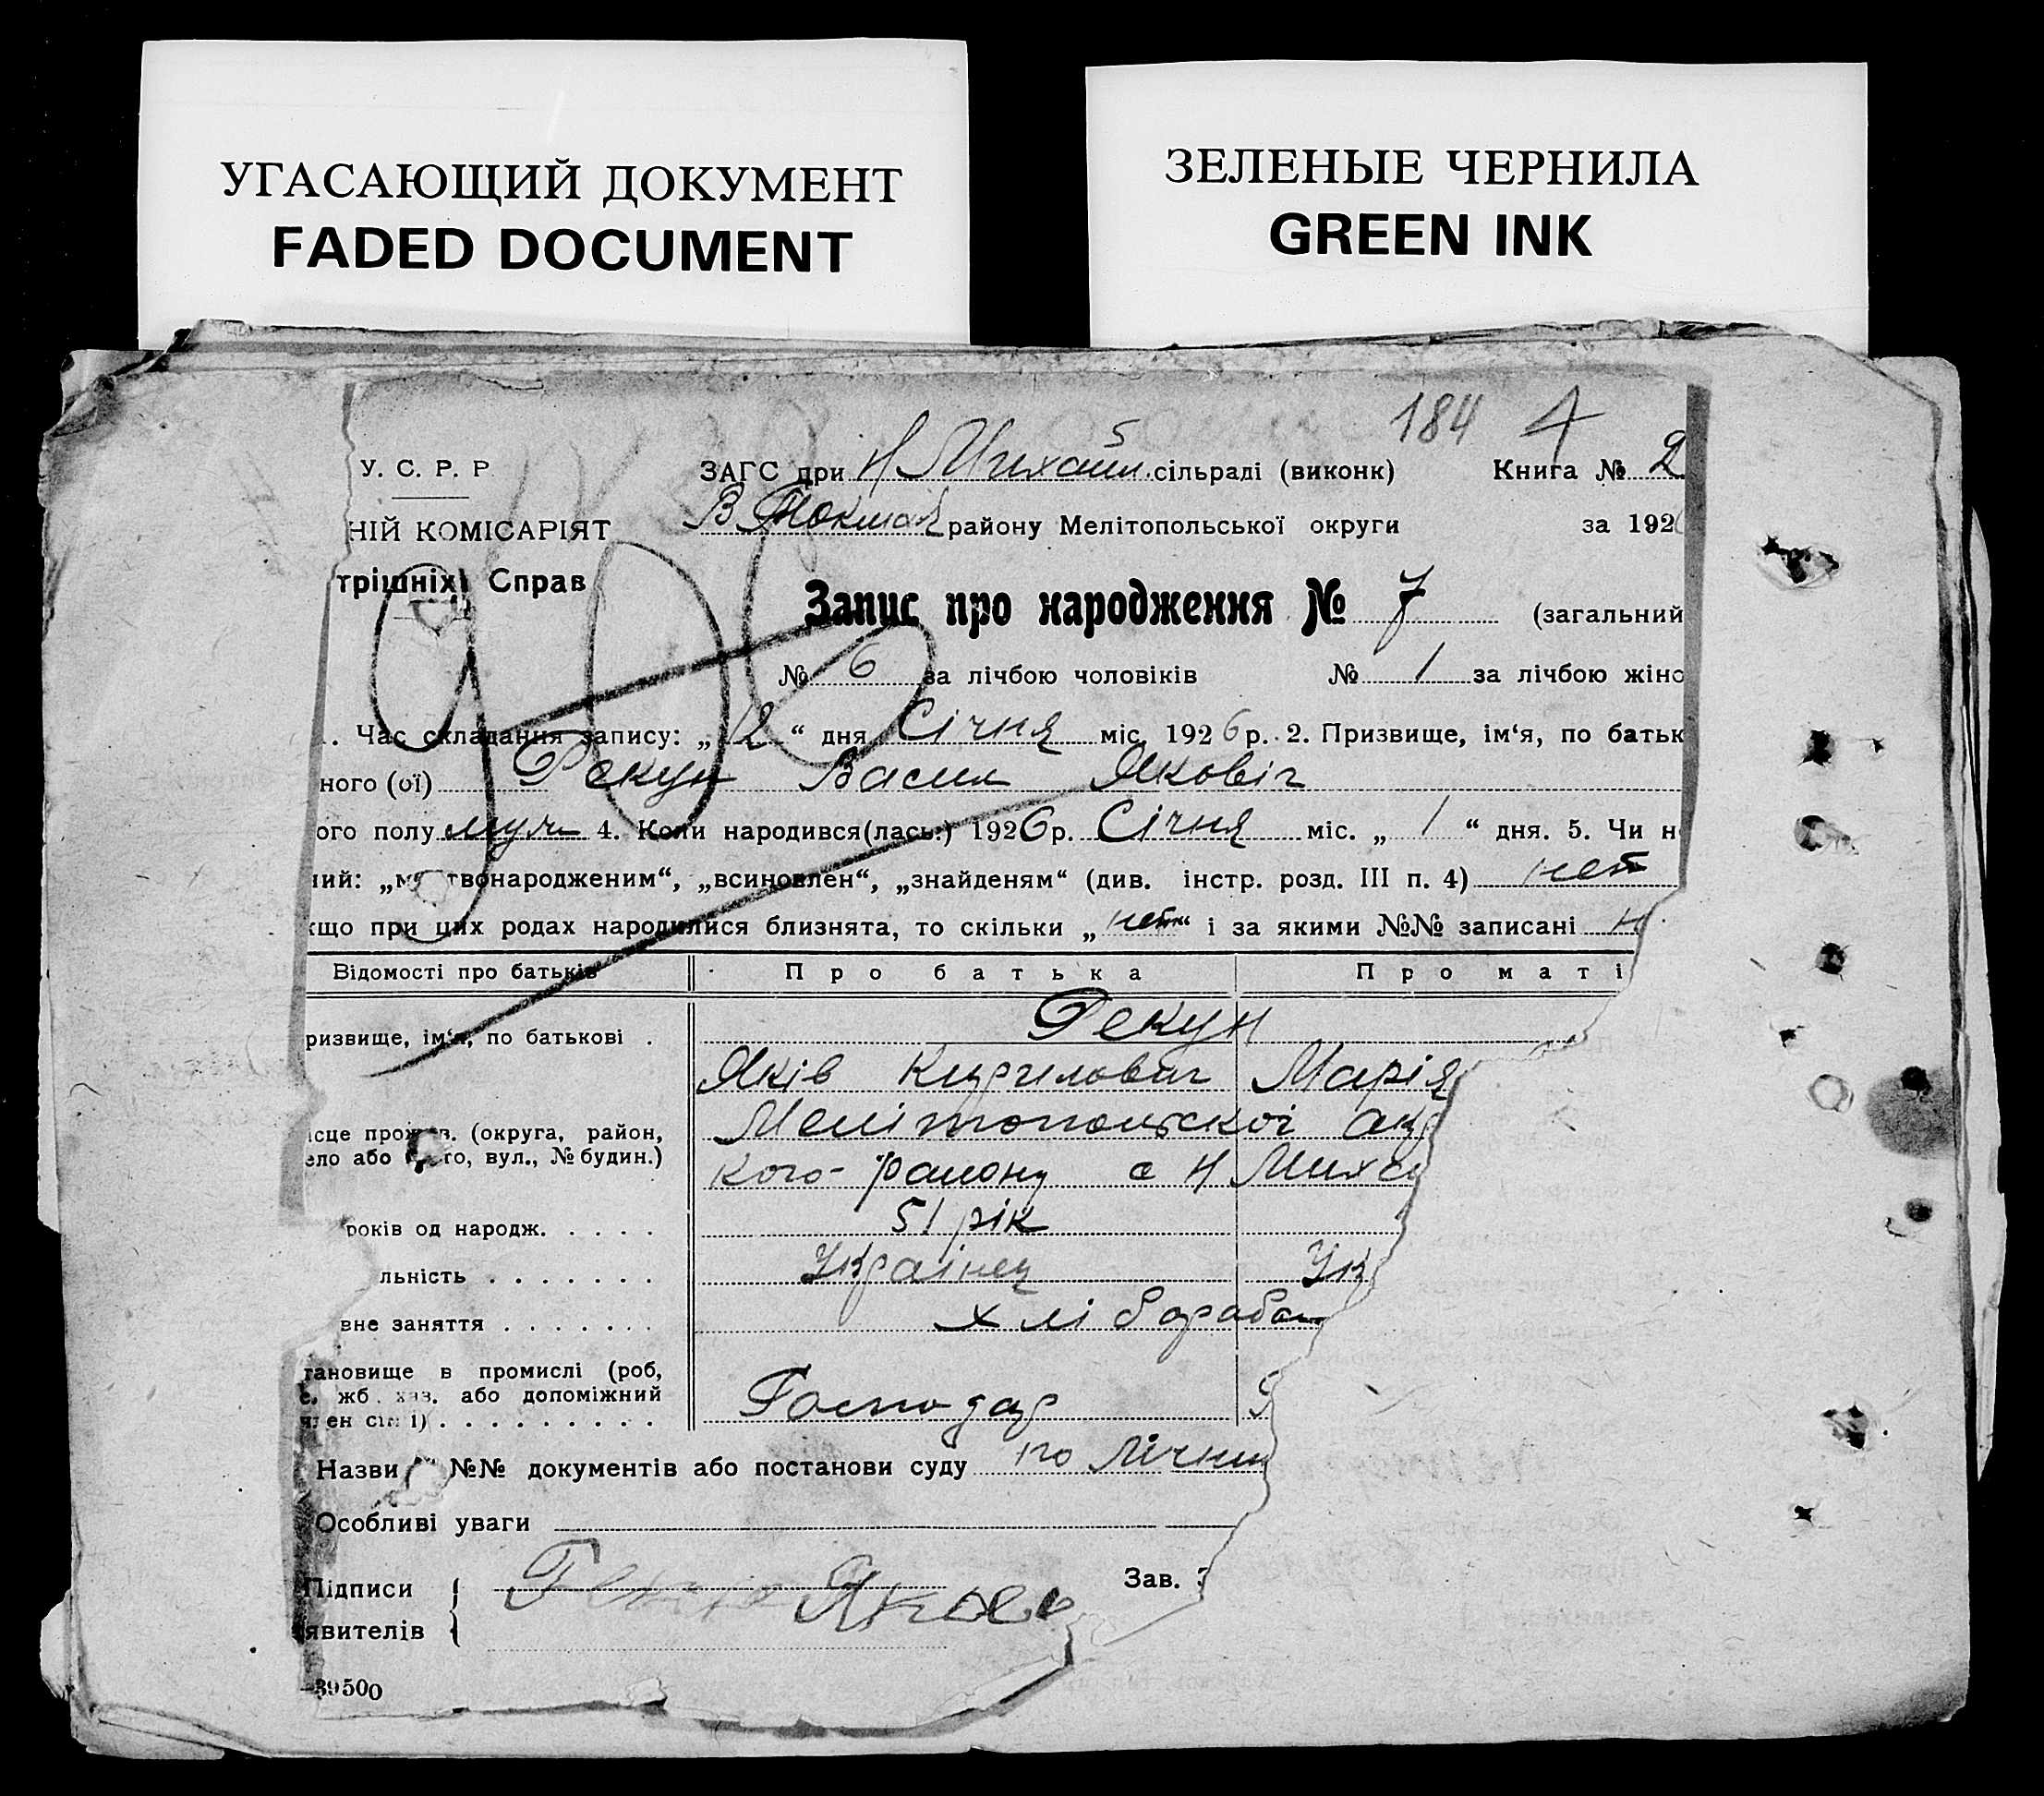 УГАСАЮЩИЙ ДОКУМЕНТ
FADED DOCUMENT
ЗЕЛЕНЫЕ ЧЕРНИЛА
GREEN INK
184 4
У. С. Р. Р
ЗАГС при Н Михайл. сільраді (виконк) Книга № 2
НІЙ КОМІСАРІЯТ
В Токмак району Мелітопольської округи за 192
трішніх Справ
Запис про народження № 7 (загальний
№ 6 за лічбою чоловіків № 1 за лічбою жіно
. Час складання запису: „12“ дня Січня міс. 1926р. 2. Призвище, ім‘я, по батьк
ного (ої) Рекун Васил Яковіч
ого полу муж 4. Коли народився(лась.) 1926р. Січня міс. „1“ дня. 5. Чи н
ний: „мертвонародженим“, „всиновлен“, „знайденям“ (див. інстр. розд. III п. 4) нет
кщо при цих родах народилися близнята, то скільки „нет“ і за якими №№ записані н
Відомості про батьків Про батька Про маті
ризвище, ім‘я, по батькові . Рекун
Яків Кирилович Марія
ісце прожив. (округа, район, Мелітопольскоі окр
ело або місто, вул., № будин.) кого району с Н Миха
років од народж. . . . . 51 рік
льність . . . . . . . Українец Ук
вне заняття . . . . . . . хліборабо
тановище в промислі (роб,
жб. хаз. або допоміжний
член сім‘ї) . . . . . . . . . Господар
Назви №№ документів або постанови суду по лічни
Особливі уваги
Підписи Яков Зав. З
явителів
39500